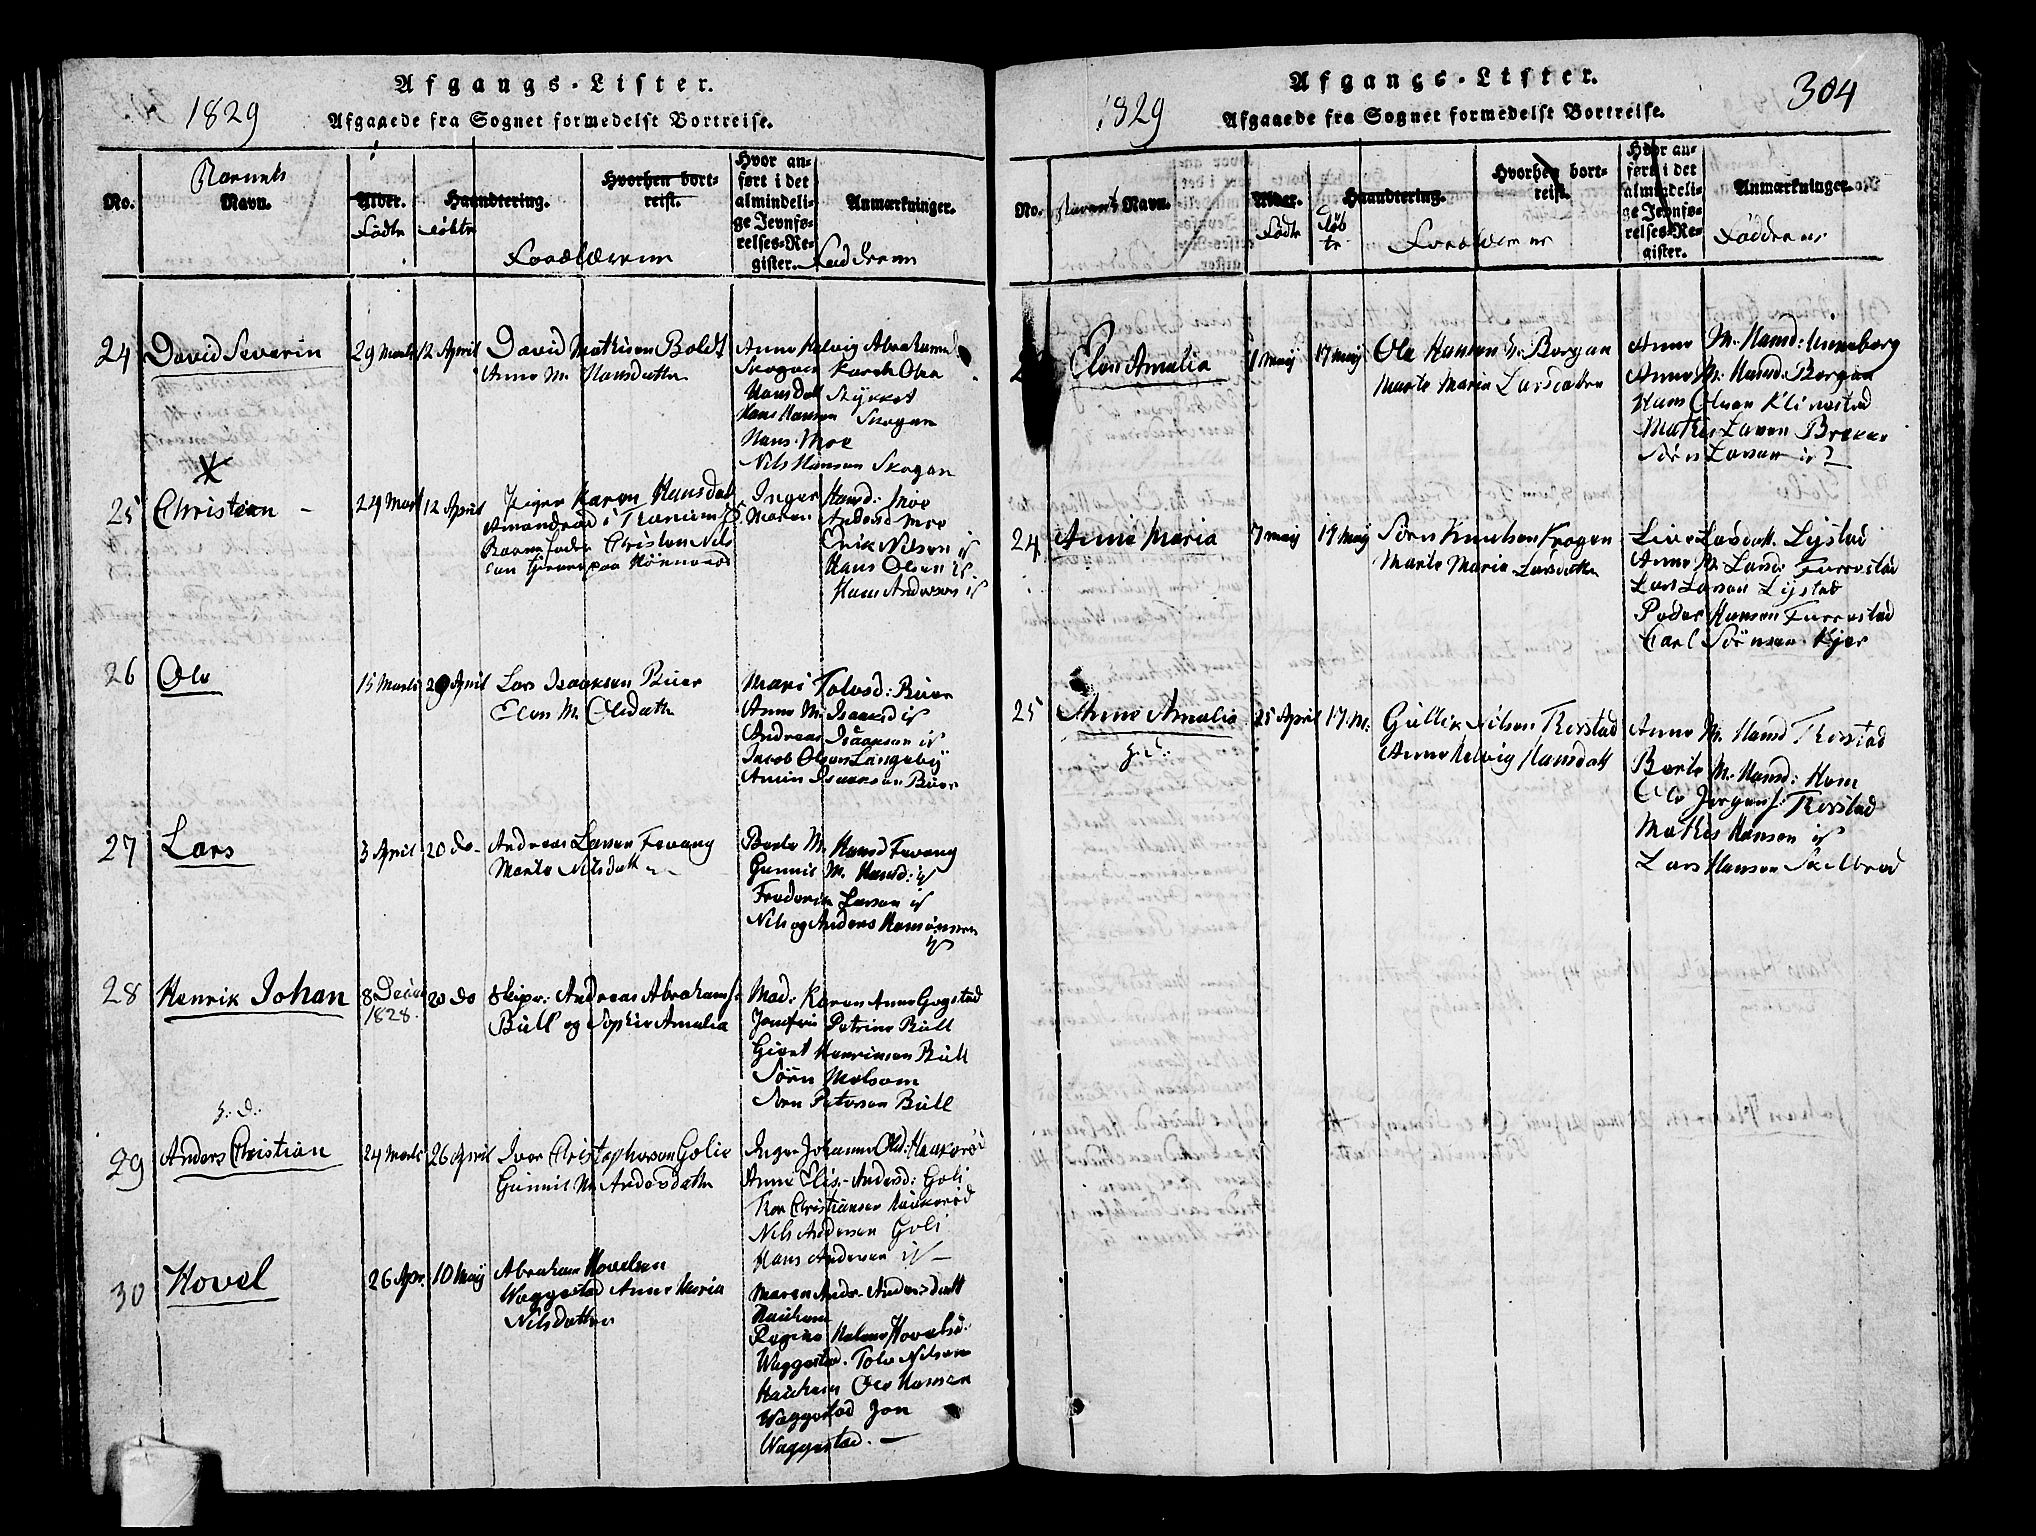 Afgangs-Lister.
1829
Afgaaede fra Sognet formedelst Bortreise.
No.
Barnets
Navn.
Alder.
Fødte
Haandtering.
Døbte
Forældrene
Hvorhen bort-
reist.
Hvor an-
ført i det
almindeli-
ge Jevnfø-
relses-Re-
gister.
Anmærkninger.
Faddrene
24 David Severin
29 Marts 12 April
David Mathisen Boldt
Anne M. Hansdatter
Anne Helvig Abrahamsd
Skogen Karen Olea
Hansdatt
Hans Hansen Skogen
Hans Moe
Nils Hansen Skogen
25 Christian -
24 Mart 12 April
Pigen Karen Hansdat
Barnefader Christen Nils
Inger Hansd: Moe
Maren Andersd Moe
Erik Nilsen
Hans Olsen
Hans Andersen
26 Ole
15 Marts 20 April
Lars Isaaksen Buer
Elen M. Olsdatter
Mari Tolvsd: Buer
Anne M. Isaaksd
Andreas Isaaksen
Jacob Olsen Langeby
Isaaksen Buer
27 Lars
3 April 20 do-
Andreas Larsen Fevang
Marte Nilsdatter
Berte M. Hansd Fevang
Gunnil M. Hansd:
Frederik Larsen
Nils og Anders
28 Henrik Johan
8 Deca
1828.
20 do
Skipr: Andreas Abrahams:
Büll og Sophie Amalia
Mad: Karen Anne Gogstad
Jomfru Petrine Büll
Giert Henriksen Büll
Sören Melsom
Sören Petersen Büll
29 Anders Christian
24 Marts 26 April
Iver Christophersen Golie
Gunnil M. Andersdatter
Inger Johanne Olsd: Haukerød
Anne Elis. Andersd: Goli
Thor Christiansen Haukerød
Nils Andersen Goli
Hans Andersen
30 Hovel
26 Apr. 10 Maÿ
Abraham Hovelsen
Waggestad Anne Maria
Nilsdatter
Maren Andr. Andersdatt
Haukem
Regine Helene Hovelsd:
Waggestad. Tolv Nilsen
Haukem Ole Hansen
Waggestad Jon
Waggestad. -
Afgangs-Lister.
304
1829
Afgaaede fra Sognet formedelst Bortreise.
No.
Barnets Navn.
Alder.
Fødte
Døb
te
Haandtering.
Forældrene
Hvorhen bort-
reist.
Hvor an-
ført i det
almindeli-
ge Jevnfø-
relses-Re-
gister.
Anmærkninger.
Faddrene
Elen Amalia
1 maÿ 17 maÿ
Ole Hansen Bergan
Marte Maria Larsdatter
Anne M. Hansd:
Anne M. Hansd: Bergan
Hans Olsen Klinestad
Mathis Larsen Brekke
Sören Larsen
24 Anne Maria
7 maÿ 17 maÿ
Sören Knudsen Krogen
Marte Maria Larsdatter
Live Larsdatt. Lÿstad
Anne M. Larsd: Furrestad
Lars Larsen Lijstad
Peder Hansen Furrestad
Carl Sörensen Kjær
25 Anne Amalia
25 April 17 M:
Gullik Nilsen Trestad
Anne Helvig Hansdatt
Anne M. Hansd Trestad
Berte M. Hansd: Hem
Ole Jørgens: Trestad
Mathis Hansen
Lars Hansen Skelbred